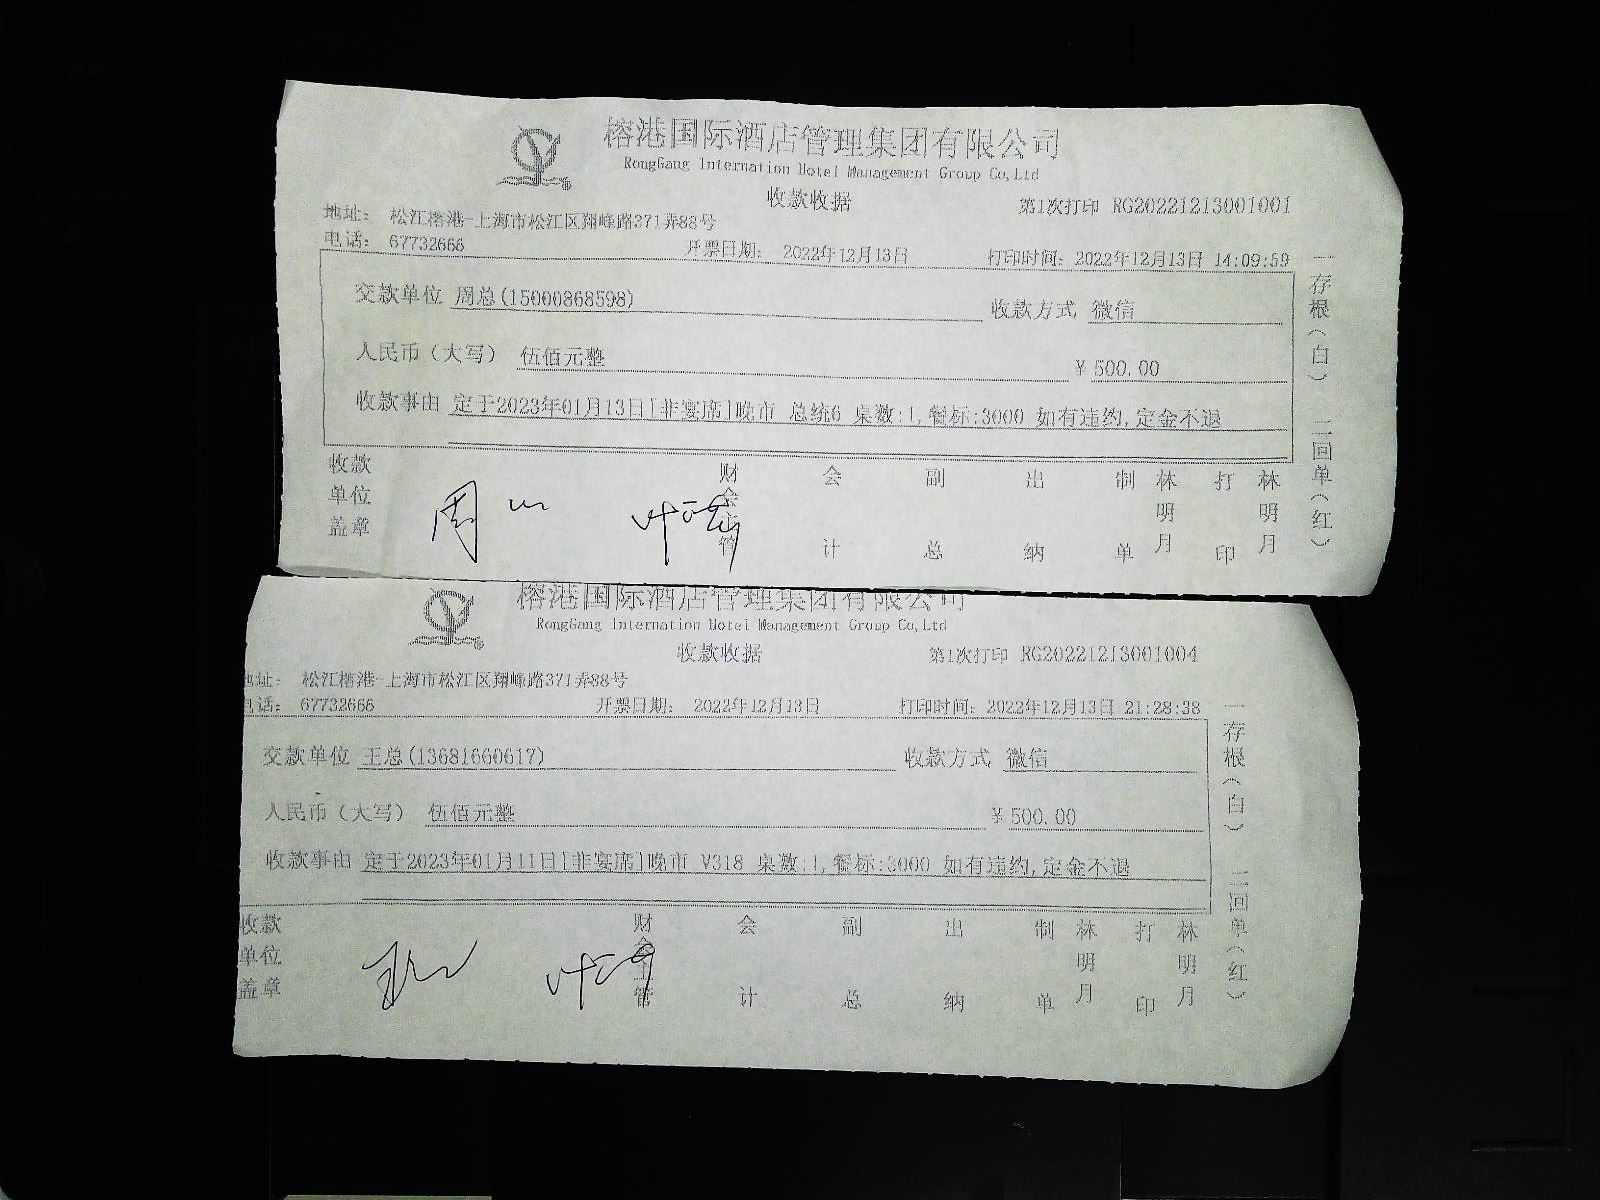 榕港国际酒店管理集团有限公司
RongGang Internation Hotel Management Group Co,Ltd
收款收据
第1次打印 RG20221213001001
地址： 松江榕港-上海市松江区翔峰路371弄88号
电话： 67732666 开票日期： 2022年12月13日 打印时间：2022年12月13日 14:09:59
交款单位 周总(15000868598) 收款方式 微信
人民币（大写） 伍佰元整 ￥500.00
收款事由 定于2023年01月13日[非宴席]晚市 总统6 桌数:1,餐标:3000 如有违约,定金不退
一存根（白） 二回单（红）
收款单位盖章 财会主管 会计 副总 出纳 制单 林明月 打印 林明月
周
榕港国际酒店管理集团有限公司
RongGang Internation Hotel Management Group Co,Ltd
收款收据
第1次打印 RG20221213001004
地址： 松江榕港-上海市松江区翔峰路371弄88号
电话： 67732666 开票日期： 2022年12月13日 打印时间：2022年12月13日 21:28:38
交款单位 王总(13681660617) 收款方式 微信
人民币（大写） 伍佰元整 ￥500.00
收款事由 定于2023年01月11日[非宴席]晚市 V318 桌数:1,餐标:3000 如有违约,定金不退
一存根（白） 二回单（红）
收款单位盖章 财会主管 会计 副总 出纳 制单 林明月 打印 林明月